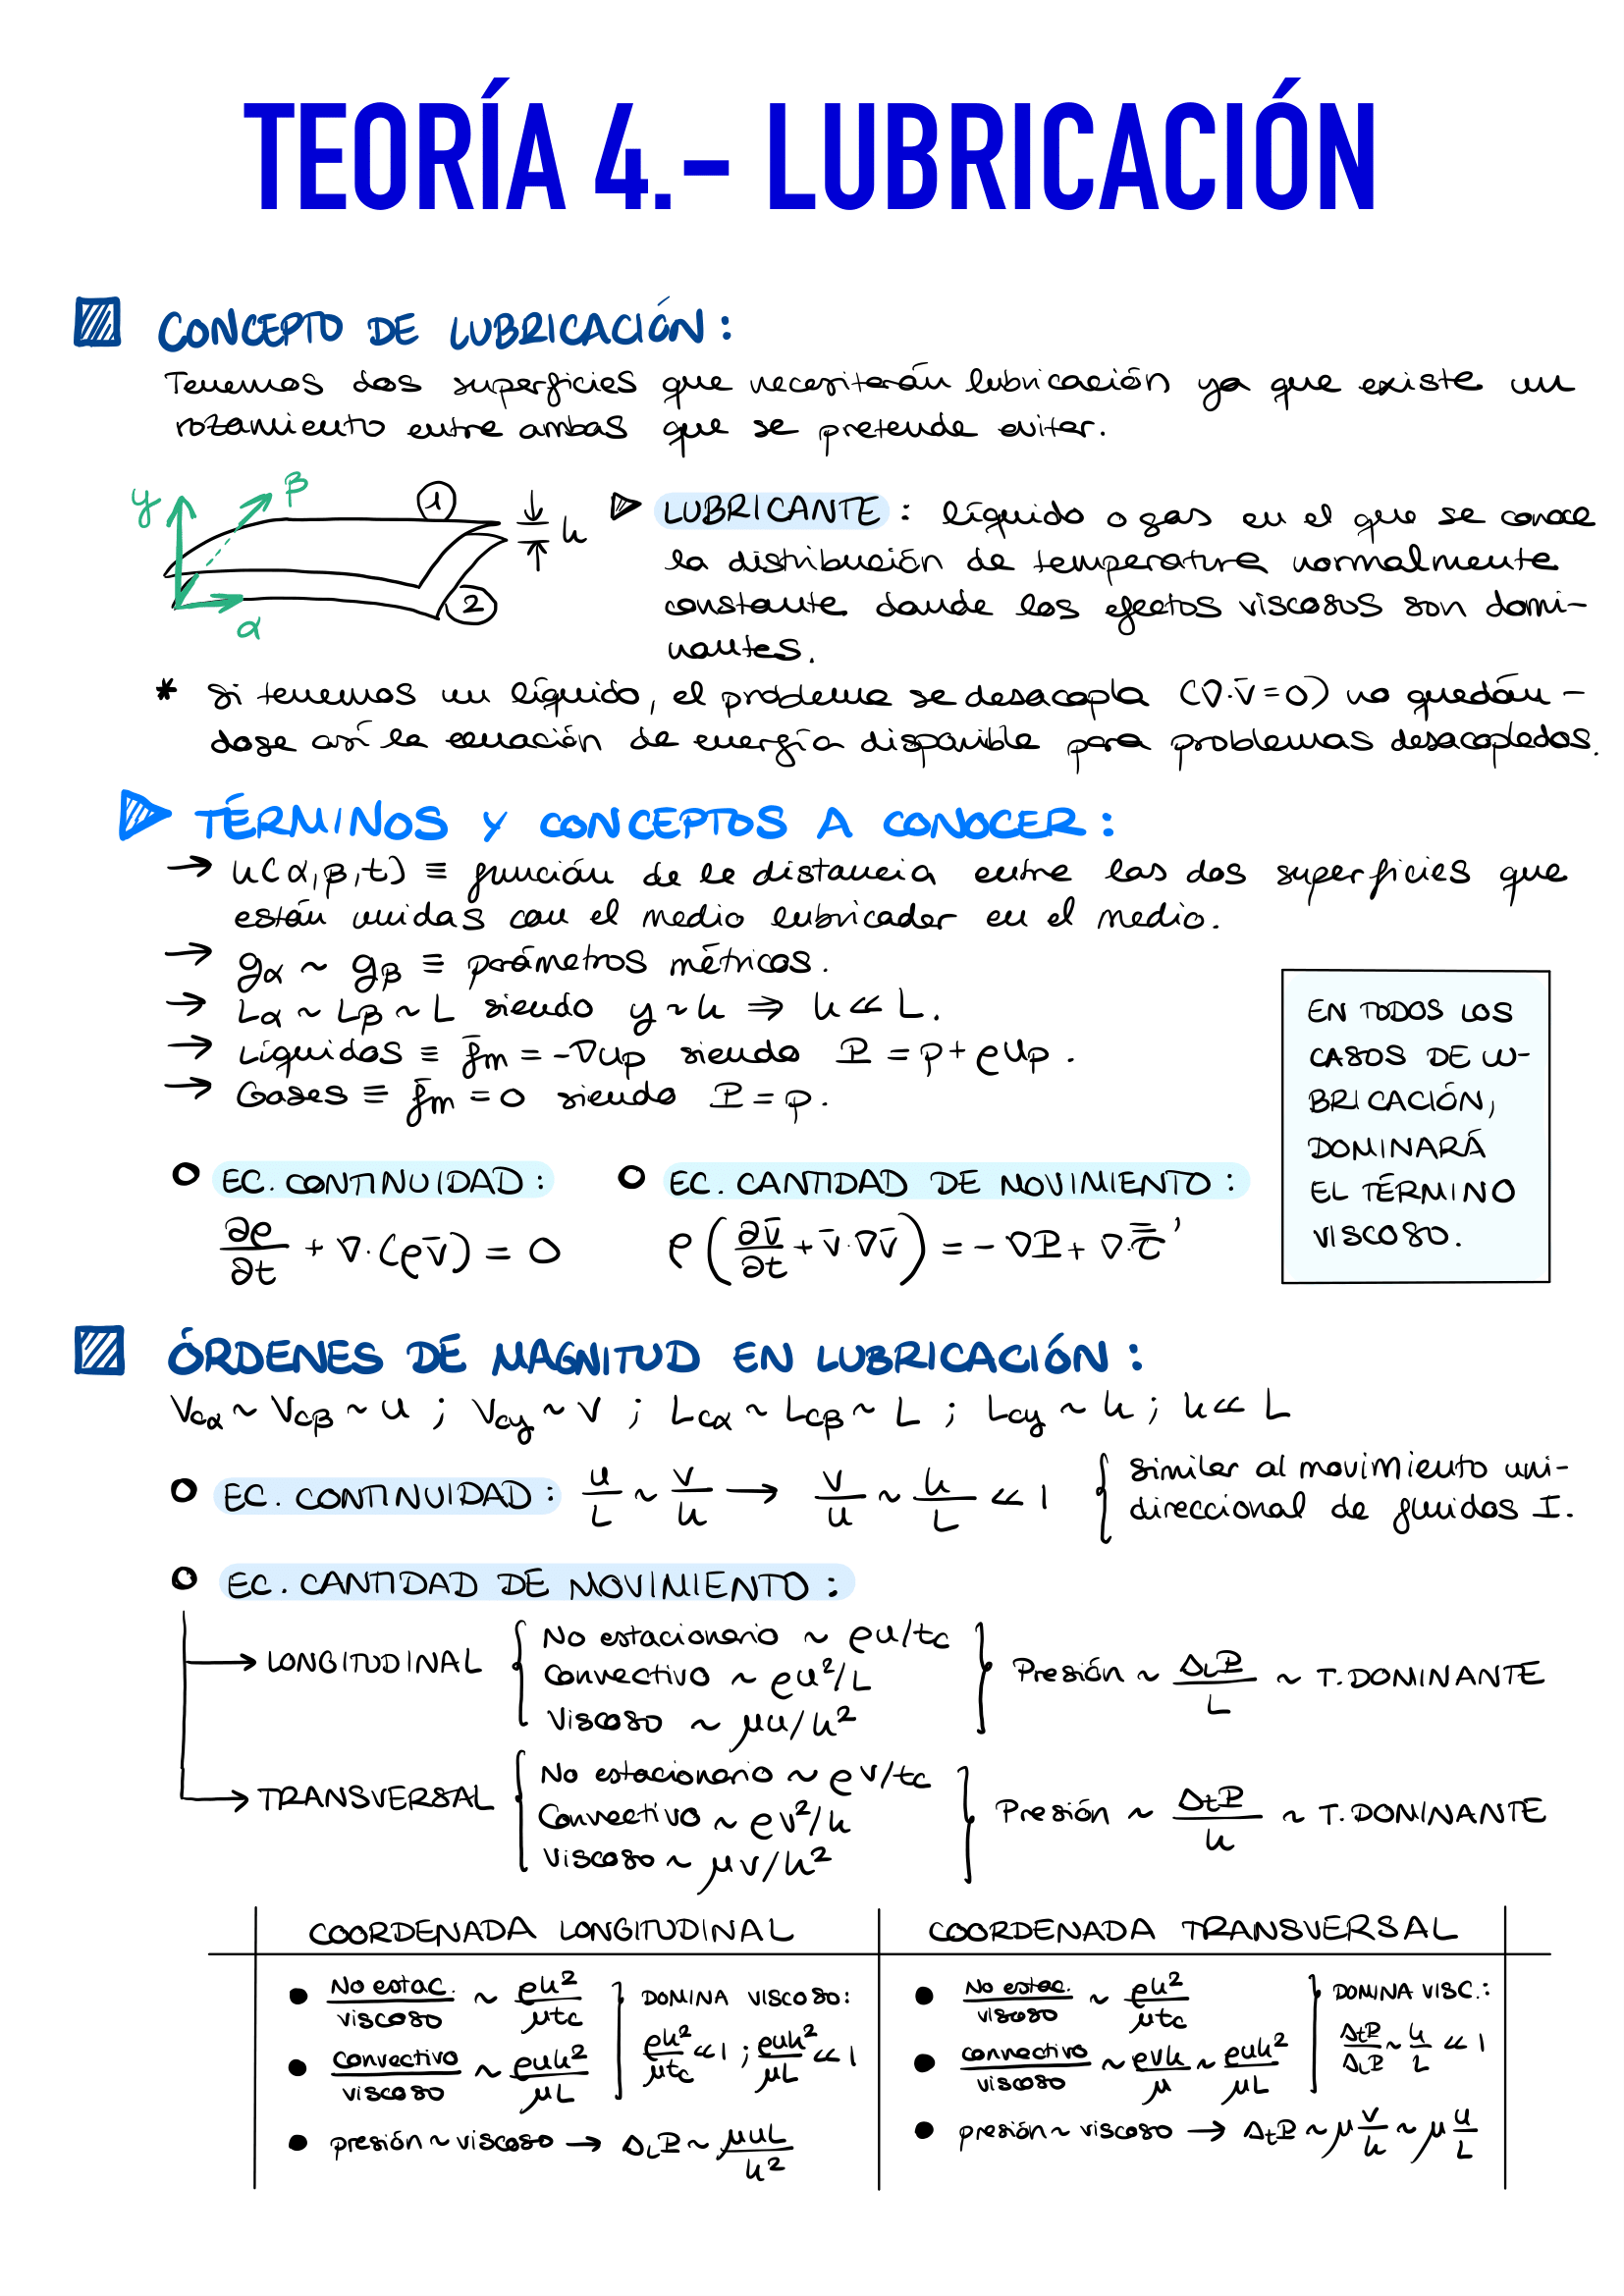 TEORÍA 4.- LUBRICACIÓN
CONCEPTO DE LUBRICACIÓN:
Tenemos dos superficies que necesitarán lubricación ya que existe un
rozamiento entre ambas que se pretende evitar.
y β 1 h
2 α
LUBRICANTE: líquido o gas en el que se conoce
la distribución de temperatura normalmente
constante donde los efectos viscosos son domi-
nantes.
* Si tenemos un líquido, el problema se desacopla (∇·v̄=0) no quedán-
dose así la ecuación de energía disponible para problemas desacoplados.
TÉRMINOS Y CONCEPTOS A CONOCER:
→ h(α,β,t) ≡ función de la distancia entre las dos superficies que
están unidas con el medio lubricador en el medio.
→ gα ~ gβ ≡ parámetros métricos.
→ Lα ~ Lβ ~ L siendo y ~ h ⇒ h ≪ L.
→ Líquidos ≡ f̄m = -∇Up siendo P = p + ρUp.
→ Gases ≡ f̄m = 0 siendo P = p.
EN TODOS LOS
CASOS DE LU-
BRICACIÓN,
DOMINARÁ
EL TÉRMINO
VISCOSO.
EC. CONTINUIDAD: EC. CANTIDAD DE MOVIMIENTO:
∂ρ/∂t + ∇·(ρv̄) = 0 ρ(∂v̄/∂t + v̄·∇v̄) = -∇P + ∇·τ̿'
ÓRDENES DE MAGNITUD EN LUBRICACIÓN:
Vcα ~ Vcβ ~ u ; Vcy ~ v ; Lcα ~ Lcβ ~ L ; Lcy ~ h ; h ≪ L
EC. CONTINUIDAD: u/L ~ v/h → v/u ~ h/L ≪ 1 { similar al movimiento uni-
direccional de fluidos I.
EC. CANTIDAD DE MOVIMIENTO:
LONGITUDINAL { No estacionario ~ ρu/tc
Convectivo ~ ρu²/L } Presión ~ ΔLP/L ~ T. DOMINANTE
Viscoso ~ μu/h²
TRANSVERSAL { No estacionario ~ ρv/tc
Convectivo ~ ρv²/h } Presión ~ ΔtP/h ~ T. DOMINANTE
Viscoso ~ μv/h²
COORDENADA LONGITUDINAL
• No estac./viscoso ~ ρh²/μtc } DOMINA VISCOSO:
• convectivo/viscoso ~ ρuh²/μL ρh²/μtc ≪ 1 ; ρuh²/μL ≪ 1
• presión ~ viscoso → ΔLP ~ μuL/h²
COORDENADA TRANSVERSAL
• No estac./viscoso ~ ρh²/μtc } DOMINA VISC.:
• convectivo/viscoso ~ ρvh/μ ~ ρuh²/μL ΔtP/ΔLP ~ h/L ≪ 1
• presión ~ viscoso → ΔtP ~ μ v/h ~ μ u/L